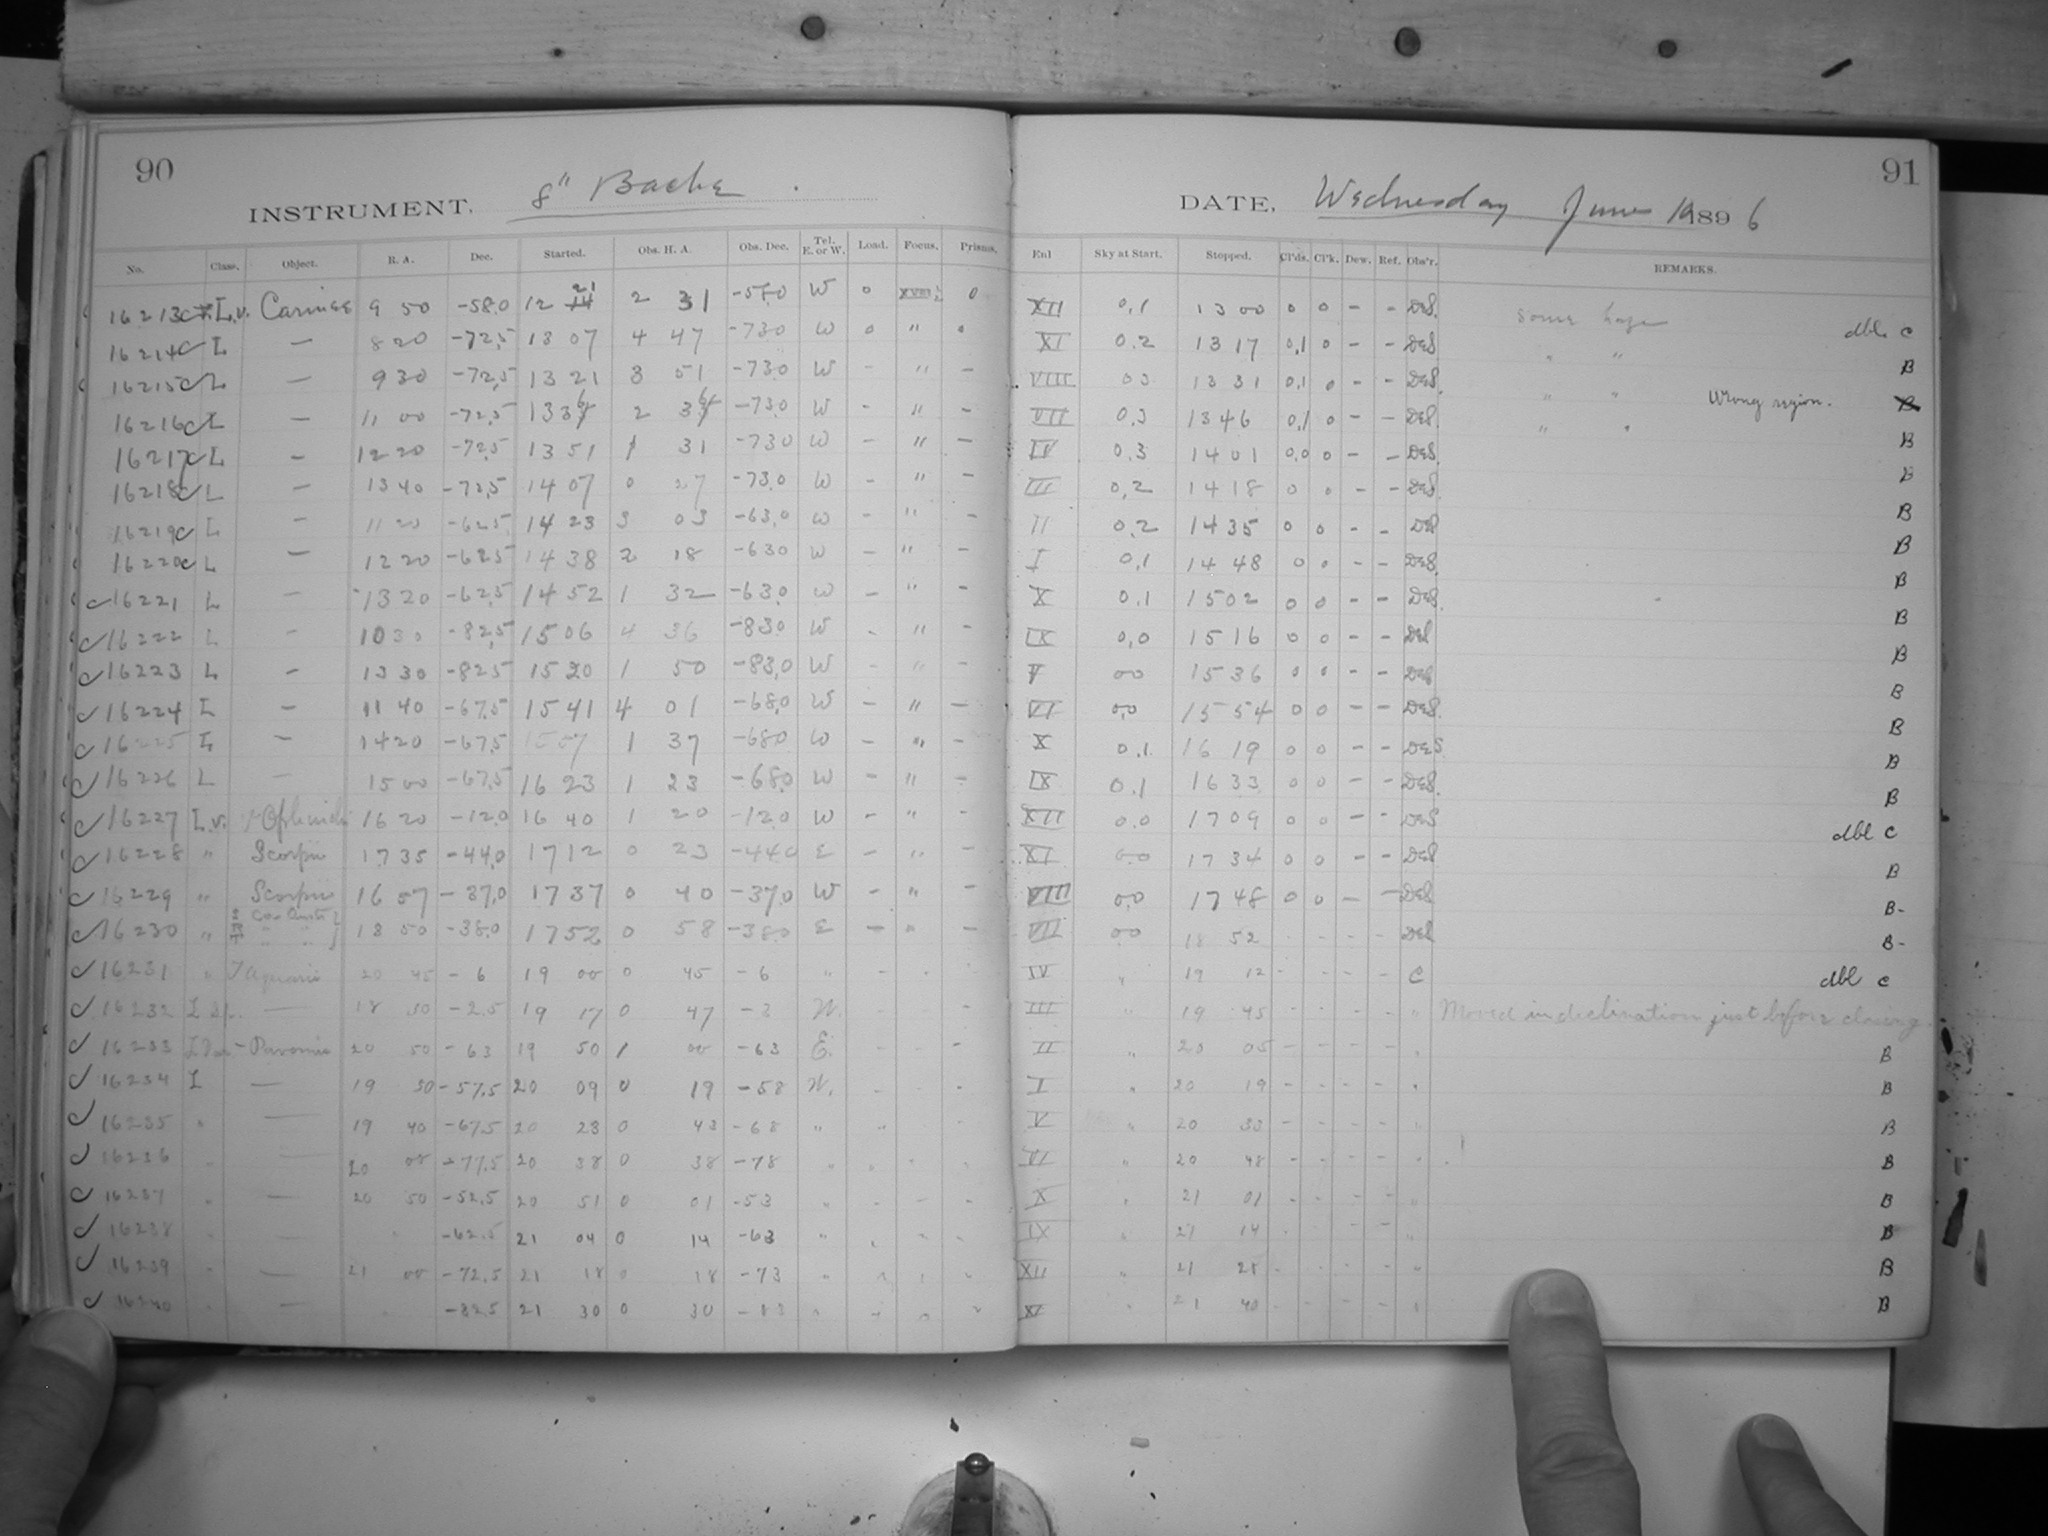 90
INSTRUMENT, 8" Bache.
No. Class. Object. R. A. Dec. Started. Obs. H. A. Obs. Dec. Tel. E. or W. Load. Focus. Prisms.
16213 L.v. Carinae 9 50 -58.0 12 21 2 31 -58.0 W 0 XVIII 0
16214 L — 8 20 -72.5 13 07 4 47 -730 W 0 " 0
16215 L — 9 30 -72.5 13 21 3 51 -730 W - " -
16216 L — 11 00 -72.5 13 36 2 36 -730 W - " -
16217 L — 12 20 -72.5 13 51 1 31 -730 W - " -
16218 L — 13 40 -72.5 14 07 0 27 -73.0 W - " -
16219 L — 11 20 -62.5 14 23 3 03 -63.0 W - " -
16220 L — 12 20 -62.5 14 38 2 18 -630 W - " -
16221 L — 13 20 -62.5 14 52 1 32 -63.0 W - " -
16222 L — 10 30 -82.5 15 06 4 36 -830 W - " -
16223 L — 13 30 -82.5 15 20 1 50 -83.0 W - " -
16224 L — 11 40 -67.5 15 41 4 01 -68.0 W - " -
16225 L — 14 20 -67.5 1 37 -680 W - " -
16226 L — 15 00 -67.5 16 23 1 23 -68.0 W - " -
16227 L.v. Ophiuchi 16 20 -12.0 16 40 1 20 -12.0 W - " -
16228 " Scorpii 17 35 -44.0 17 12 0 23 -440 E - " -
16229 " Scorpii 16 57 -37.0 17 37 0 40 -37.0 W - " -
16230 " 18 50 -38.0 17 52 0 58 -38.0 E - " -
16231 " T Aquarii 20 45 -6 19 00 0 45 -6 " - " -
16232 L — 18 30 -2.5 19 17 0 47 -3 W. -
16233 Pavonis 20 50 -63 19 50 1 00 -63 E. - - -
16234 L — 19 50 -57.5 20 09 0 19 -58 W. - - -
16235 " — 19 40 -67.5 20 23 0 43 -68 " "
16236 " — 20 00 -77.5 20 38 0 38 -78 "
16237 " — 20 50 -52.5 20 51 0 01 -53 " - - -
16238 " — " -62.5 21 04 0 14 -63 "
16239 " — 21 00 -72.5 21 18 0 18 -73 "
16240 " — " -82.5 21 30 0 30 -83 "
91
DATE, Wednesday June 1896
Enl Sky at Start. Stopped. Cl'ds. Cl'k. Dew. Ref. Obs'r. REMARKS.
XII 0.1 13 00 0 0 - - DeS. some haze dbl. C
XI 0.2 13 17 0.1 0 - - DeS " " B
VIII 03 13 31 0.1 0 - - DeS. " " Wrong region. B
VII 0.3 13 46 0.1 0 - - DeS. " " B
IV 0.3 14 01 0.0 0 - - DeS. B
III 0.2 14 18 0 0 - - DeS. B
II 0.2 14 35 0 0 - - DeS B
I 0.1 14 48 0 0 - - DeS. B
X 0.1 15 02 0 0 - - DeS. B
IX 0.0 15 16 0 0 - - DeS B
V 00 15 36 0 0 - - DeS B
VI 0.0 15 54 0 0 - - DeS. B
X 0.1 16 19 0 0 - - DeS B
IX 0.1 16 33 0 0 - - DeS. B
XII 0.0 17 09 0 0 - - DeS dbl C
XI 0.0 17 34 0 0 - - DeS B
VIII 0.0 17 48 0 0 - - DeS B-
VII 00 18 52 - - - - DeS B-
IV " 19 12 - - - - C dbl C
III " 19 45 - - - - " Moved in declination just before closing
II " 20 05 - - - - " B
I " 20 19 - - - - " B
V " 20 33 - - - - " B
VI " 20 48 - - - - " B
X " 21 01 - - - - " B
IX " 21 14 - - - - " B
XII " 21 28 - - - - " B
XI " 21 40 - - - - " B